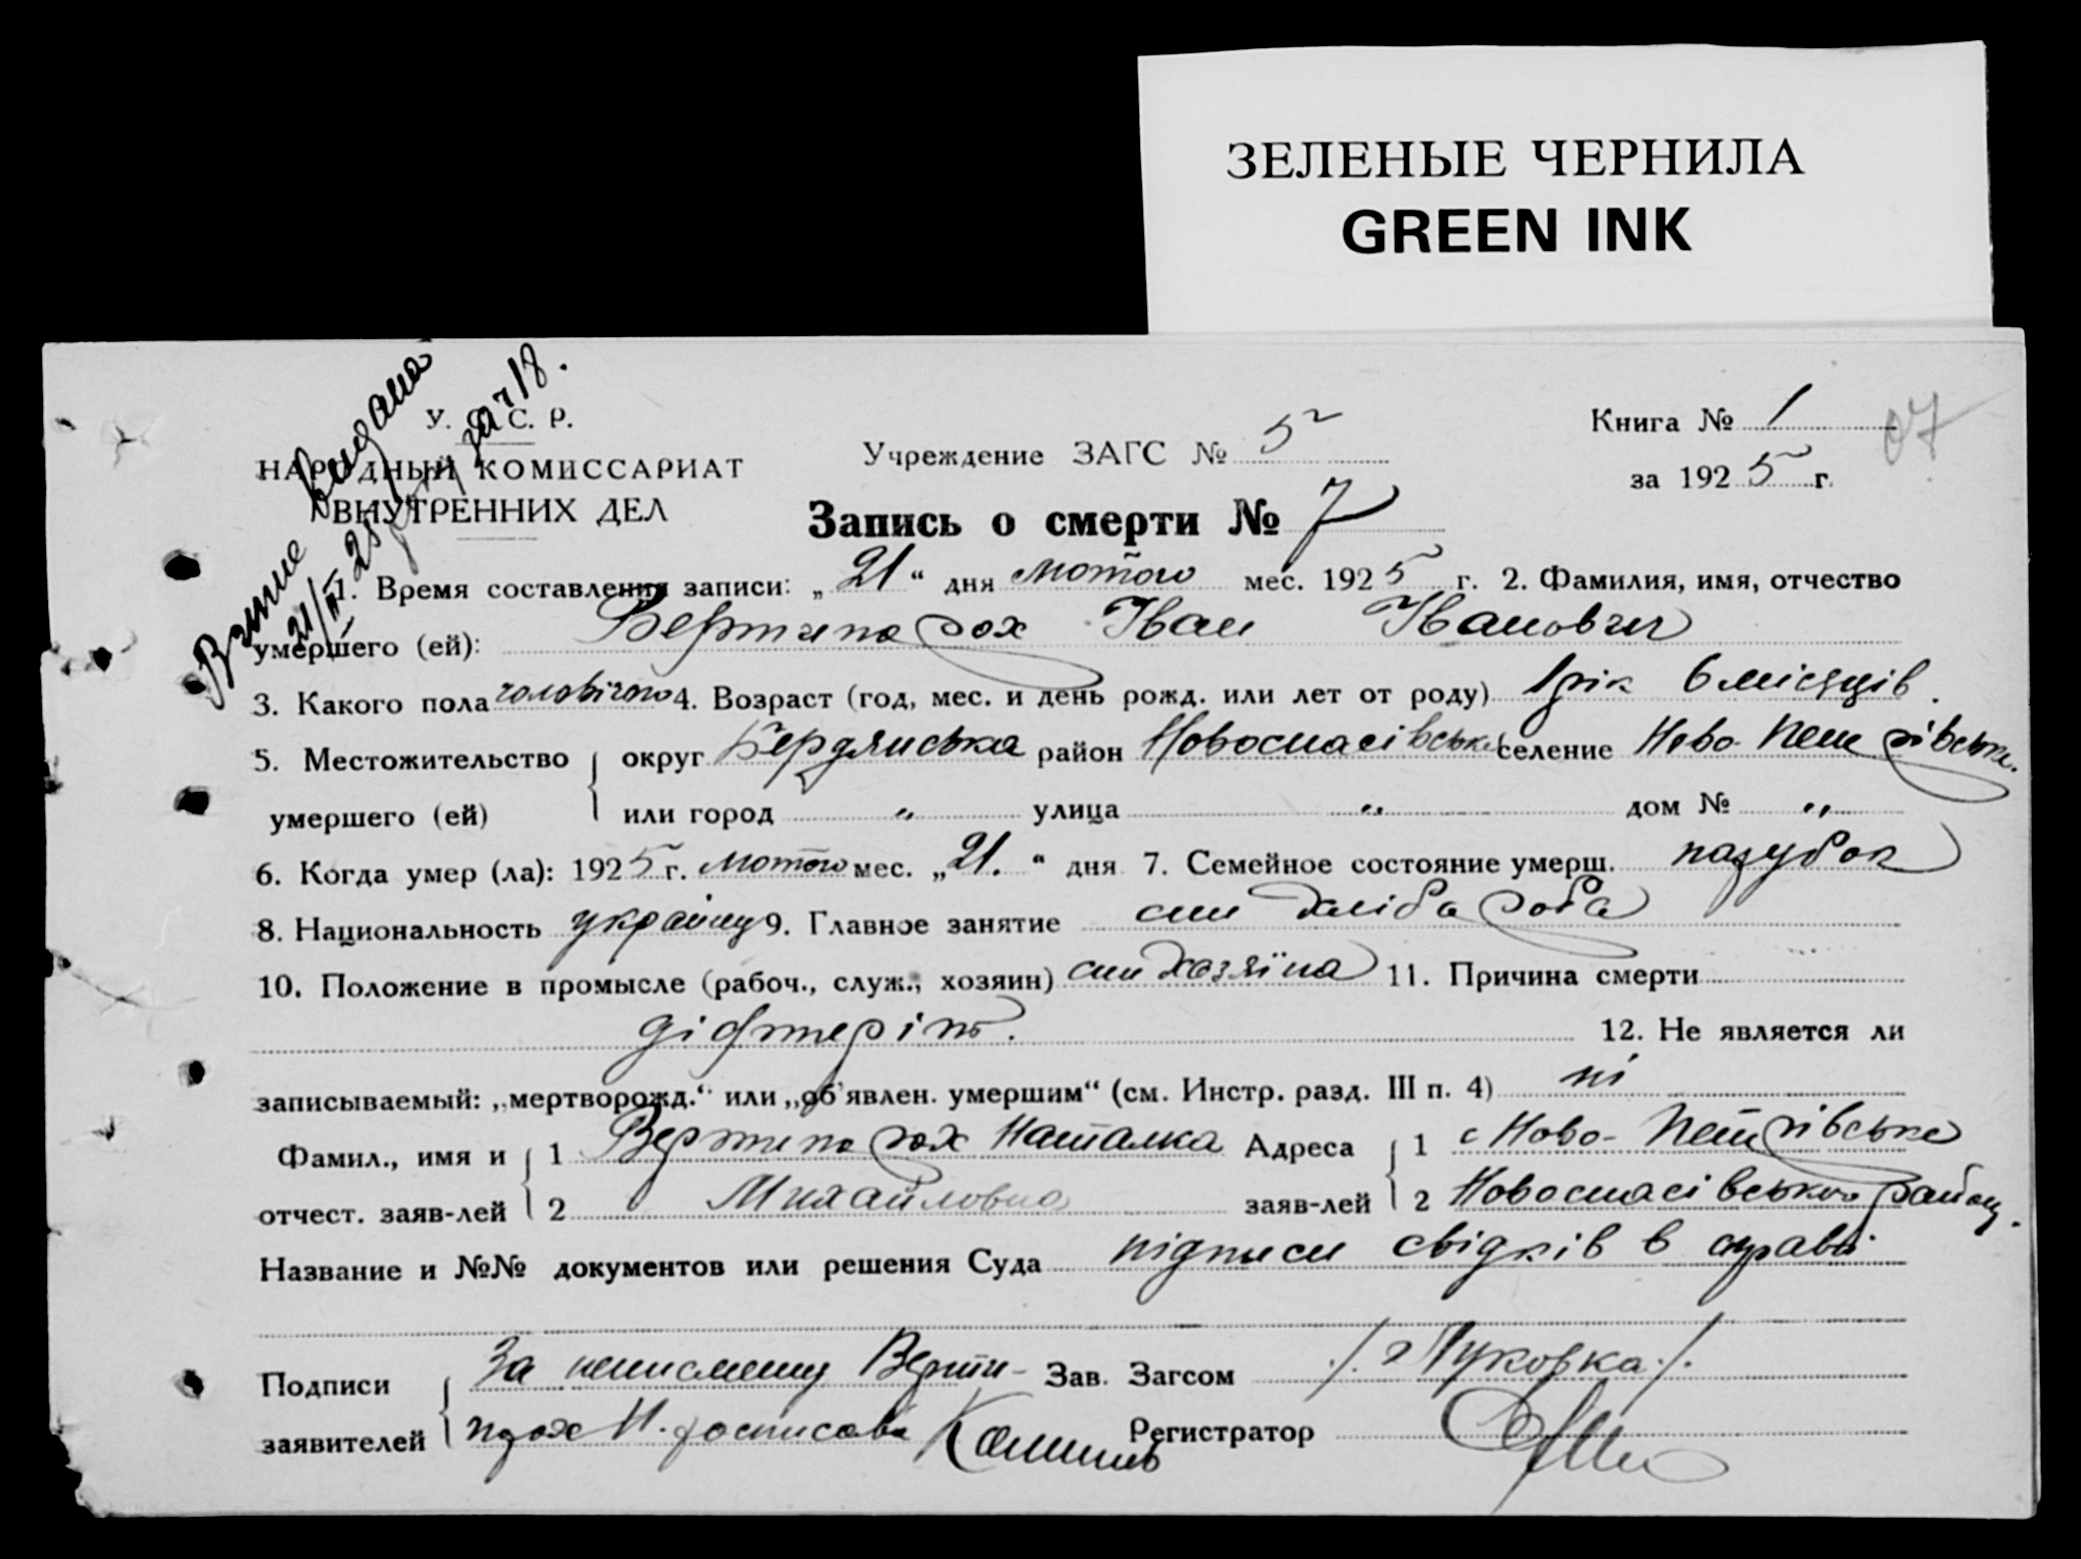 ЗЕЛЕНЫЕ ЧЕРНИЛА
GREEN INK
У. С. С. Р.
НАРОДНЫЙ КОМИССАРИАТ
ВНУТРЕННИХ ДЕЛ
Учреждение ЗАГС № 5
Книга № 1
за 1925 г.
07
Запись о смерти № 7
1. Время составления записи: „21“ дня лютого мес. 1925 г. 2. Фамилия, имя, отчество
умершего (ей): Вертипорох Іван Іванович
3. Какого пола чоловічого 4. Возраст (год, мес. и день рожд. или лет от роду) 1 рік 6 місяців.
5. Местожительство округ Бердянська район Новоспасівськ селение Ново-Петрівське.
умершего (ей) или город " улица " дом № "
6. Когда умер (ла): 1925 г. лютого мес. „21.“ дня 7. Семейное состояние умерш. парубок
8. Национальность украінец 9. Главное занятие син хлібороба
10. Положение в промысле (рабоч., служ., хозяин) син хозяїна 11. Причина смерти
діфтеріт.
12. Не является ли
записываемый: „мертворожд.“ или „об'явлен. умершим“ (см. Инстр. разд. III п. 4) ні
Фамил., имя и 1 Вертипорох Наталка Адреса 1 с Ново-Петрівське
отчест. заяв-лей 2 Михайловна заяв-лей 2 Новоспасівського району.
Название и №№ документов или решения Суда підписи свідків в справі
Подписи За неписмену Верти- Зав. Загсом /. Пуковка ./.
заявителей порох Н. росписався Регистратор